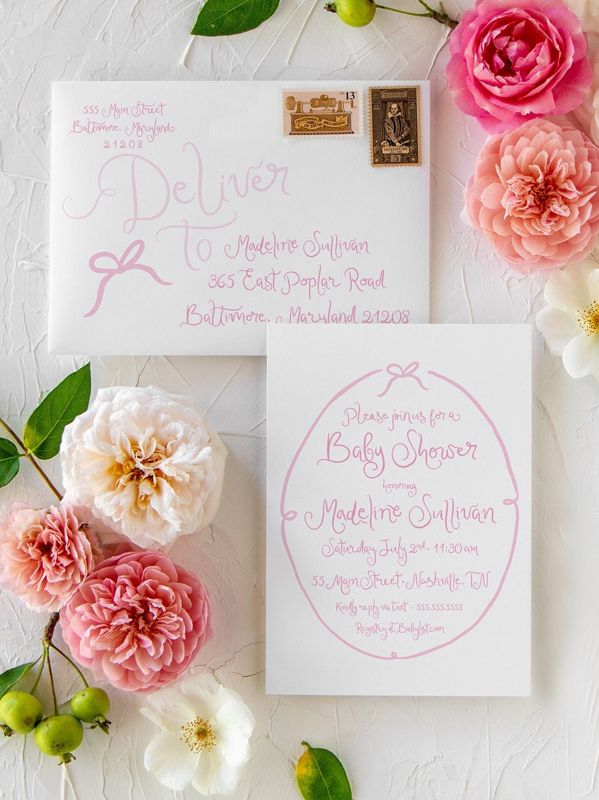 555 Main Street
Baltimore, Maryland
21208
Deliver
To
Madeline Sullivan
365 East Poplar Road
Baltimore, Maryland 21208
13
Please join us for a
Baby Shower
honoring
Madeline Sullivan
Saturday July 2nd - 11:30 am
55 Main Street - Nashville, TN
Kindly reply via text - 555.555.5555
Registry at Babylist.com